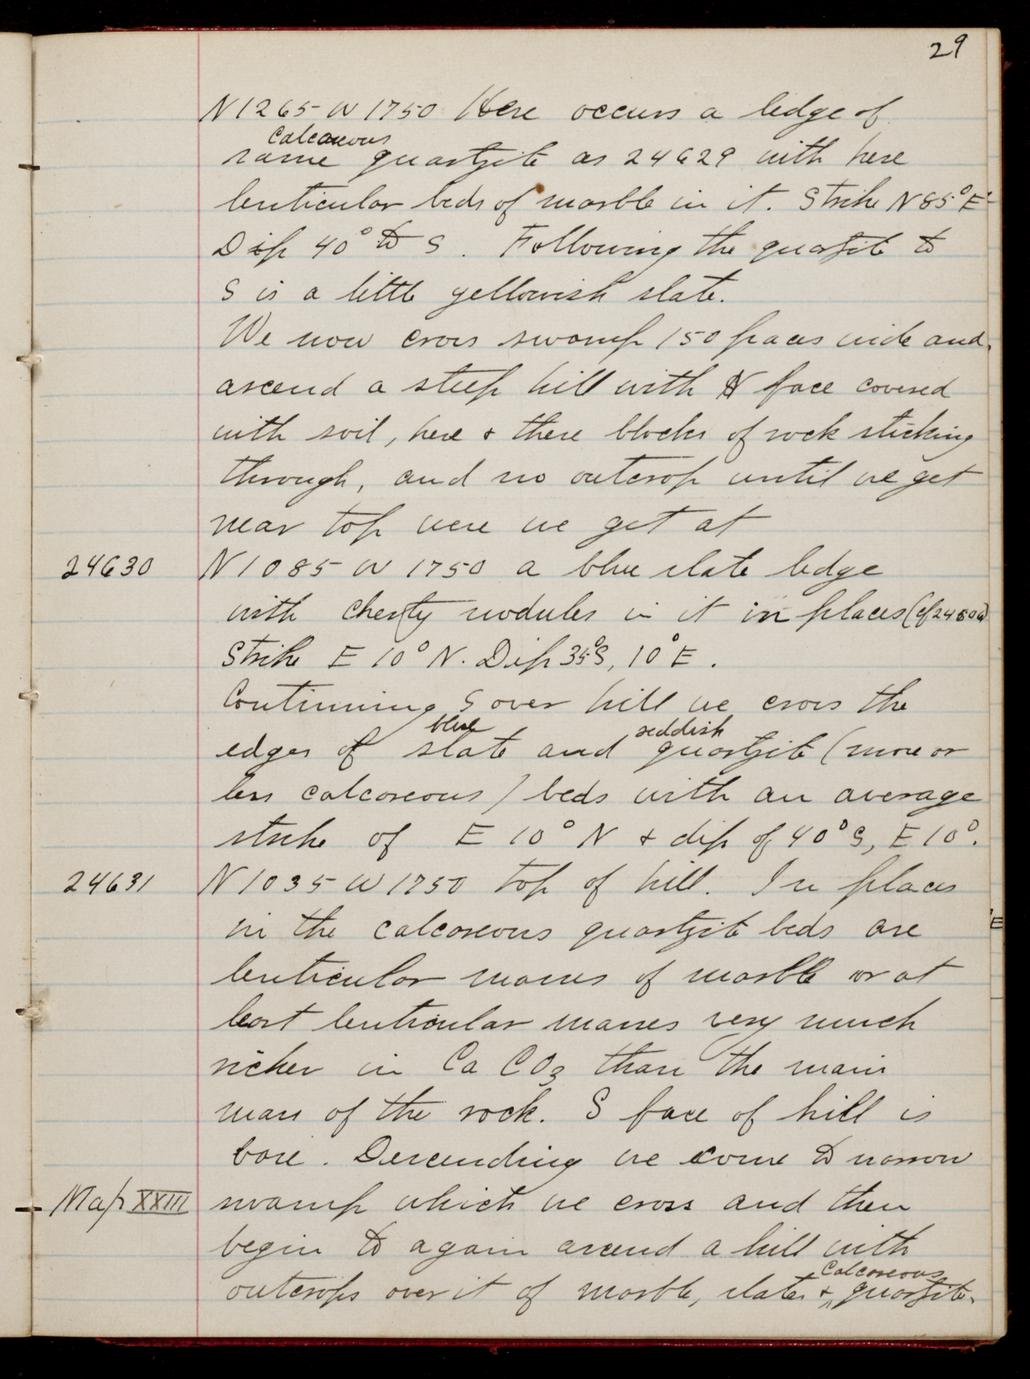 29
N1265 W1750 Here occurs a ledge of
calcareous
same quartzite as 24629 with here
lenticular beds of marble in it. Strike N85°E
Dip 40° to S. Following the quartzite to
S is a little yellowish slate.
We now cross swamp 150 paces wide and
ascend a steep hill with N face covered
with soil, here & there blocks of rock sticking
through, and no outcrop until we get
near top were we get at
24630 N1085 W1750 a blue slate ledge
with cherty nodules in it in places (cf
Strike E 10° N. Dip 35°S, 10°E.
Continuing S over hill we cross the
blue reddish
edges of slate and quartzite (more or
less calcareous) beds with an average
strike of E 10° N & dip of 40° S, E 10°.
24631 N1035 W1750 top of hill. In places
in the calcareous quartzite beds are
lenticular masses of marble or at
least lenticular masses very much
richer in CaCO3 than the main
mass of the rock. S face of hill is
bare. Descending we come to narrow
Map XXIII swamp which we cross and then
begin to again ascend a hill with
calcareous
outcrops over it of marble, slate & quartzite.